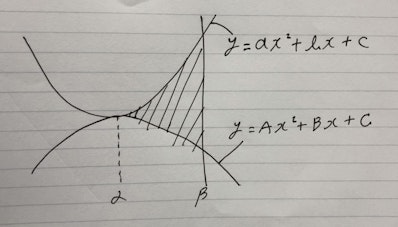 y=ax²+bx+c
y=Ax²+Bx+C
α
β